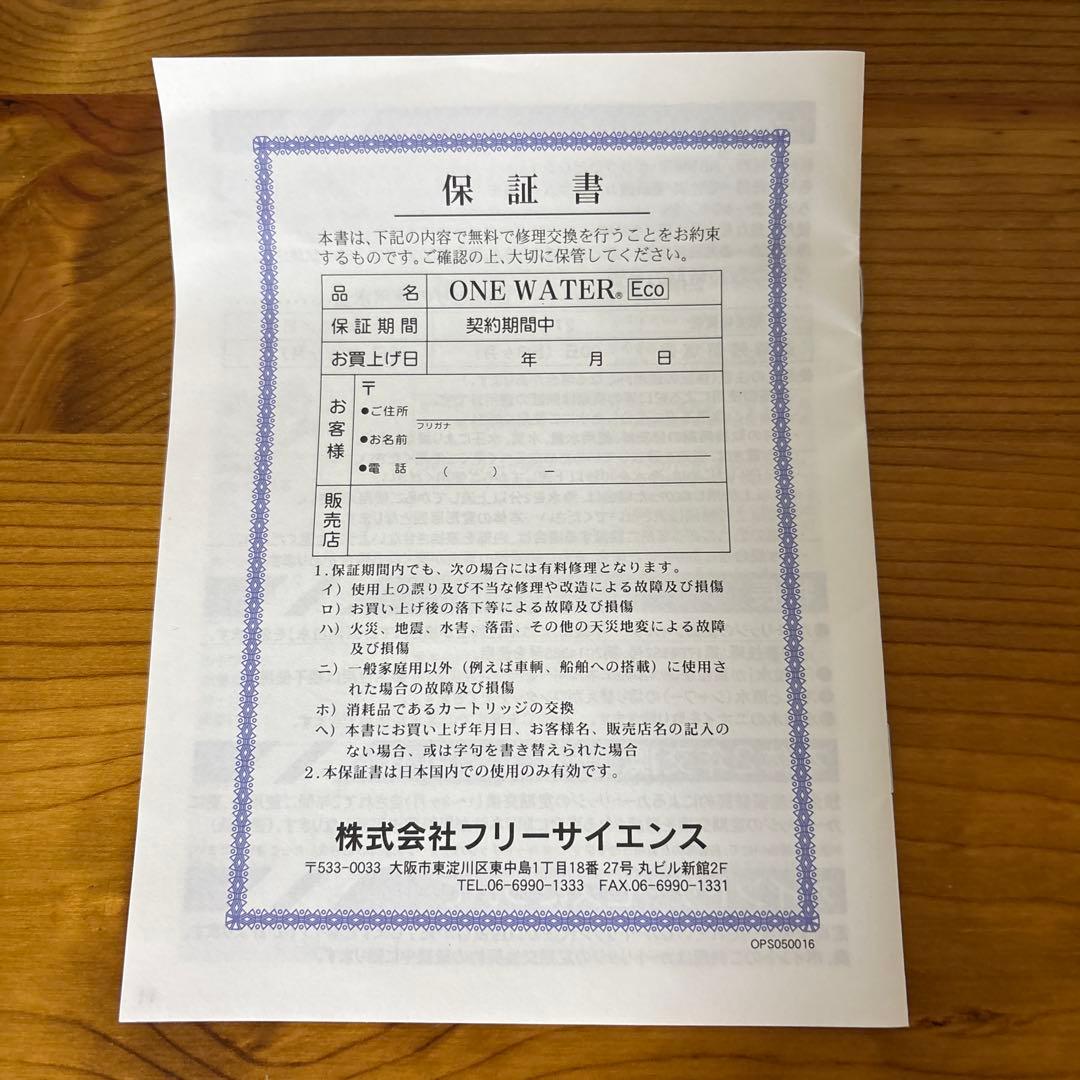 保証書
本書は、下記の内容で無料で修理交換を行うことをお約束
するものです。ご確認の上、大切に保管してください。
品名 ONE WATER® Eco
保証期間 契約期間中
お買上げ日 年 月 日
お客様
〒
●ご住所
フリガナ
●お名前
●電話 ( ) ー
販売店
1.保証期間内でも、次の場合には有料修理となります。
イ）使用上の誤り及び不当な修理や改造による故障及び損傷
ロ）お買い上げ後の落下等による故障及び損傷
ハ）火災、地震、水害、落雷、その他の天災地変による故障
及び損傷
ニ）一般家庭用以外（例えば車輌、船舶への搭載）に使用さ
れた場合の故障及び損傷
ホ）消耗品であるカートリッジの交換
ヘ）本書にお買い上げ年月日、お客様名、販売店名の記入の
ない場合、或は字句を書き替えられた場合
2.本保証書は日本国内での使用のみ有効です。
株式会社フリーサイエンス
〒533-0033 大阪市東淀川区東中島1丁目18番27号 丸ビル新館2F
TEL.06-6990-1333 FAX.06-6990-1331
OPS050016